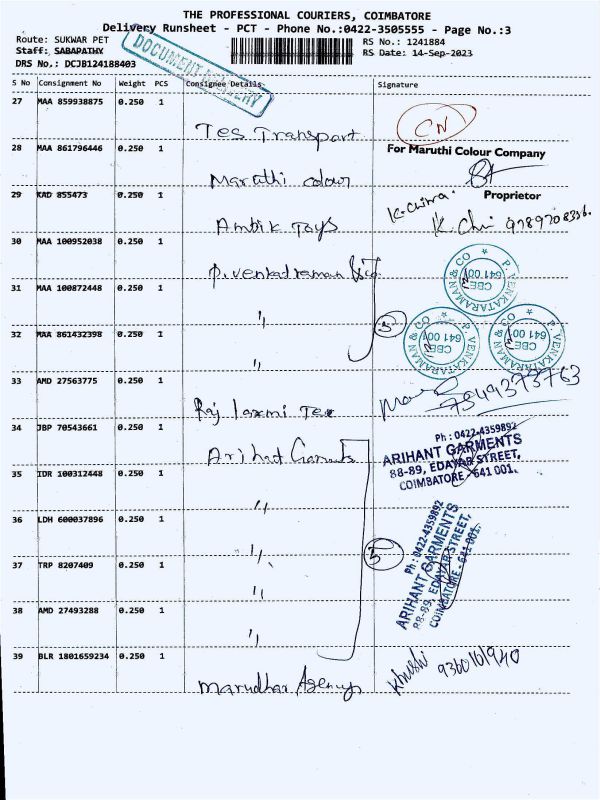 THE PROFESSIONAL COURIERS, COIMBATORE
Delivery Runsheet - PCT - Phone No.:0422-3505555 - Page No.:3
Route: SUKWAR PET
RS No.: 1241884
Staff: SABAPATHY
RS Date: 14-Sep-2023
DRS No.: DCJB124188403
DOCUMENT DELIVERY
S No Consignment No Weight PCS Consignee Details Signature
27 MAA 859938875 0.250 1
Tes Transport CN
28 MAA 861796446 0.250 1 For Maruthi Colour Company
Maruthi colour Proprietor
29 KAD 855473 0.250 1
Ambik Toys K. Chi 9789708336.
30 MAA 100952038 0.250 1
P. Venkatraman & Co
P. VENKATARAMAN & CO * CBE 641 001
31 MAA 100872448 0.250 1
〃 3
P. VENKATARAMAN & CO * CBE 641 001
P. VENKATARAMAN & CO * CBE 641 001
32 MAA 861432398 0.250 1
〃
33 AMD 27563775 0.250 1
Raj laxmi Tex 7549373763
34 JBP 70543661 0.250 1
Arihat Garments
Ph : 0422-4359892
ARIHANT GARMENTS
88-89, EDAYAR STREET,
COIMBATORE - 641 001.
35 IDR 100312448 0.250 1
〃
36 LDH 600037896 0.250 1
〃 5
Ph : 0422-4359892
ARIHANT GARMENTS
88-89, EDAYAR STREET,
COIMBATORE - 641 001.
37 TRP 8207409 0.250 1
〃
38 AMD 27493288 0.250 1
〃
39 BLR 1801659234 0.250 1
Marudhar Agency Khushi 9360161940